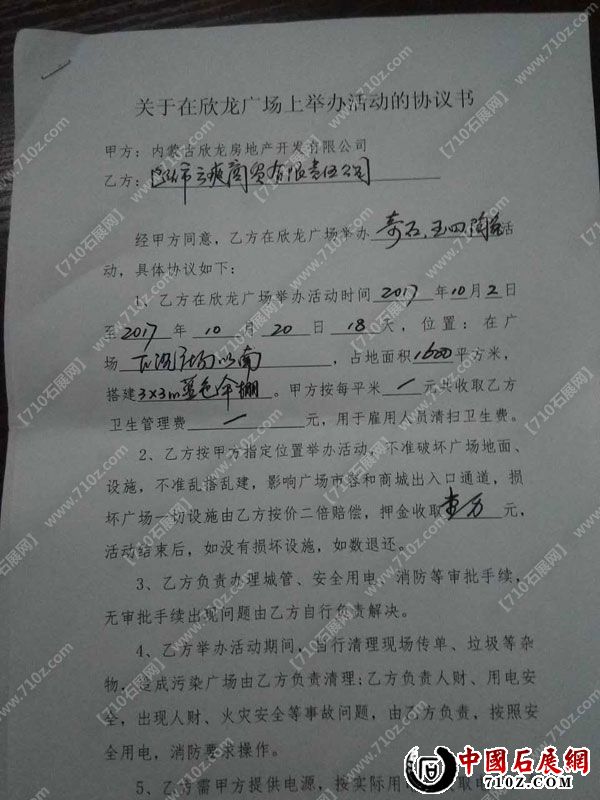 关于在欣龙广场上举办活动的协议书
甲方：内蒙古欣龙房地产开发有限公司
乙方：市云爽商贸有限责任公司
经甲方同意，乙方在欣龙广场举办奇石、玉器、陶瓷活
动，具体协议如下：
1、乙方在欣龙广场举办活动时间 2017 年 10 月 2 日
至 2017 年 10 月 20 日 18 天，位置：在广
场 广场以南 ，占地面积 1600 平方米，
搭建 3×3m蓝色伞棚 。甲方按每平米 一 元共收取乙方
卫生管理费 一 元，用于雇用人员清扫卫生费。
2、乙方按甲方指定位置举办活动，不准破坏广场地面、
设施，不准乱搭乱建，影响广场市容和商城出入口通道，损
坏广场一切设施由乙方按价二倍赔偿，押金收取 壹万 元，
活动结束后，如没有损坏设施，如数退还。
3、乙方负责办理城管、安全用电、消防等审批手续，
无审批手续出现问题由乙方自行负责解决。
4、乙方举办活动期间，当行清理现场传单、垃圾等杂
物，造成污染广场由乙方负责清理；乙方负责人财、用电安
全，出现人财、火灾安全等事故问题，由乙方负责，按照安
全用电，消防要求操作。
5、乙方需甲方提供电源，按实际用 取电
中國石展網
710Z.COM
【710石展网】
www.710z.com